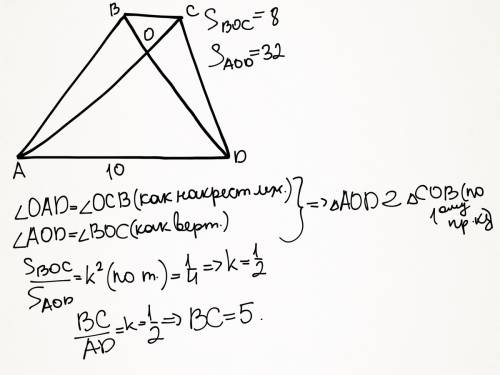 B C
O
S_BOC = 8
S_AOD = 32
A 10 D
∠OAD = ∠OCB (как накрест леж.)
∠AOD = ∠BOC (как верт.)
} => △AOD ~ △COB (по 1ому пр. к)
S_BOC/S_AOD = k² (по т.) = 1/4 => k = 1/2
BC/AD = k = 1/2 => BC = 5.